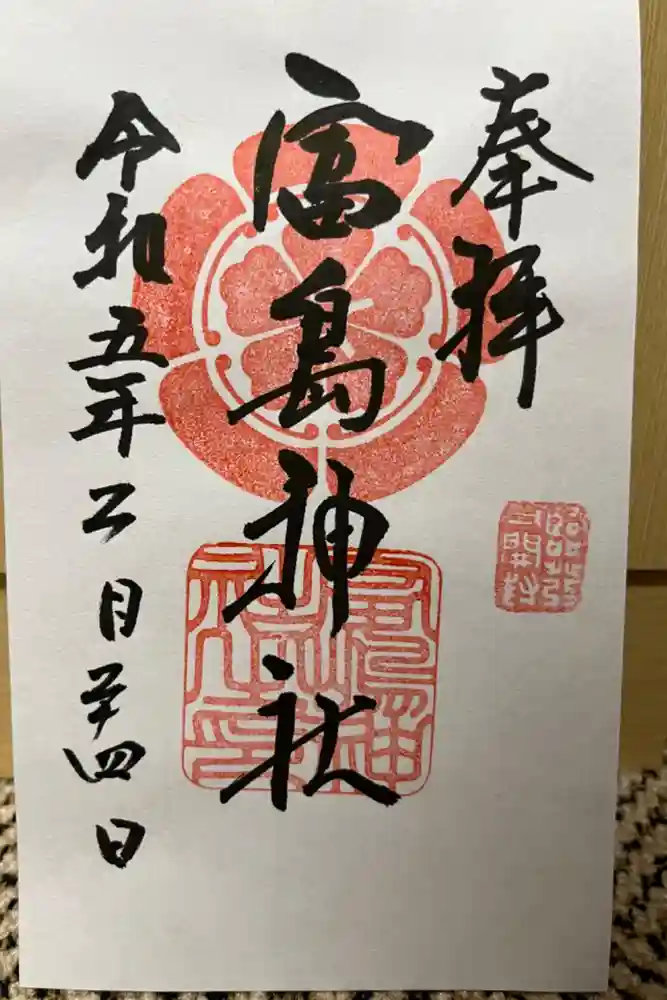 奉拝
富島神社
令和五年二月廿四日